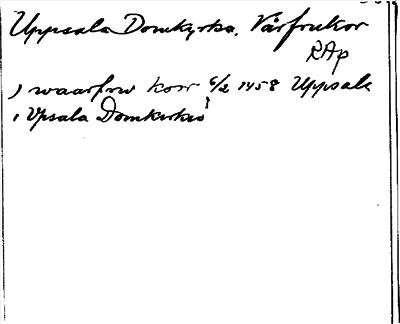 Uppsala Domkyrka. Vårfrukor
RAp
) waarfrw korr 6/2 1458 Uppsala
i Vpsala Domkirkio